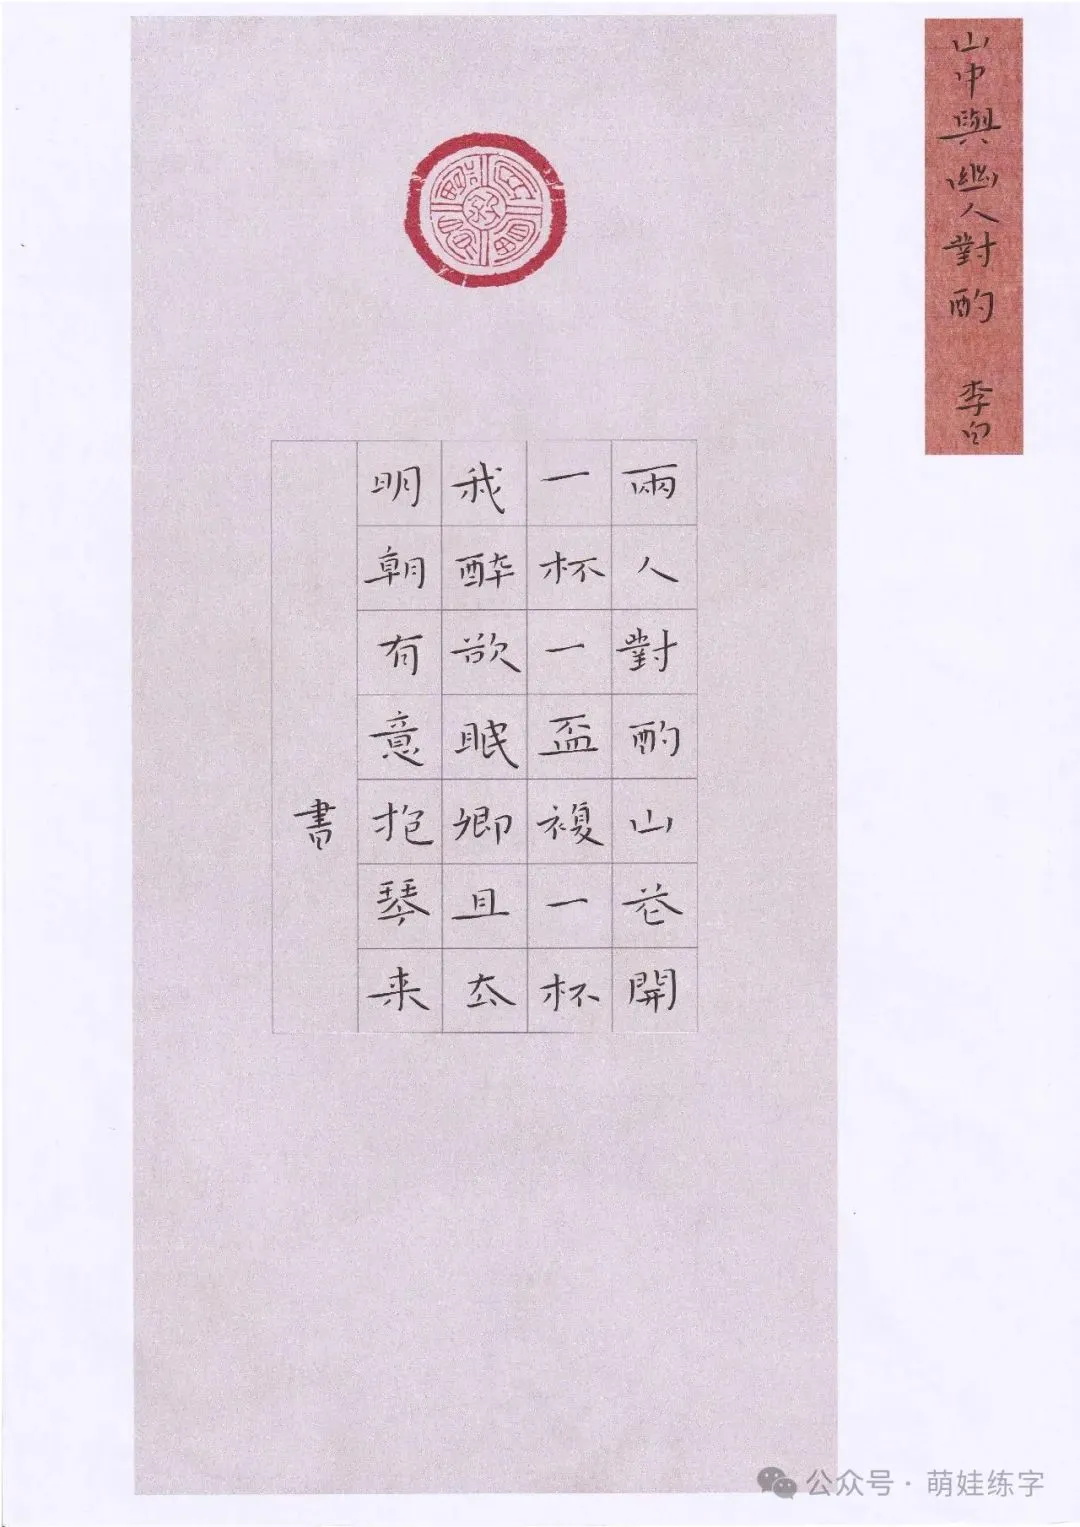 山中與幽人對酌 李白
兩人對酌山花開
一杯一盃複一杯
我醉欲眠卿且去
明朝有意抱琴来
書
公众号·萌娃练字